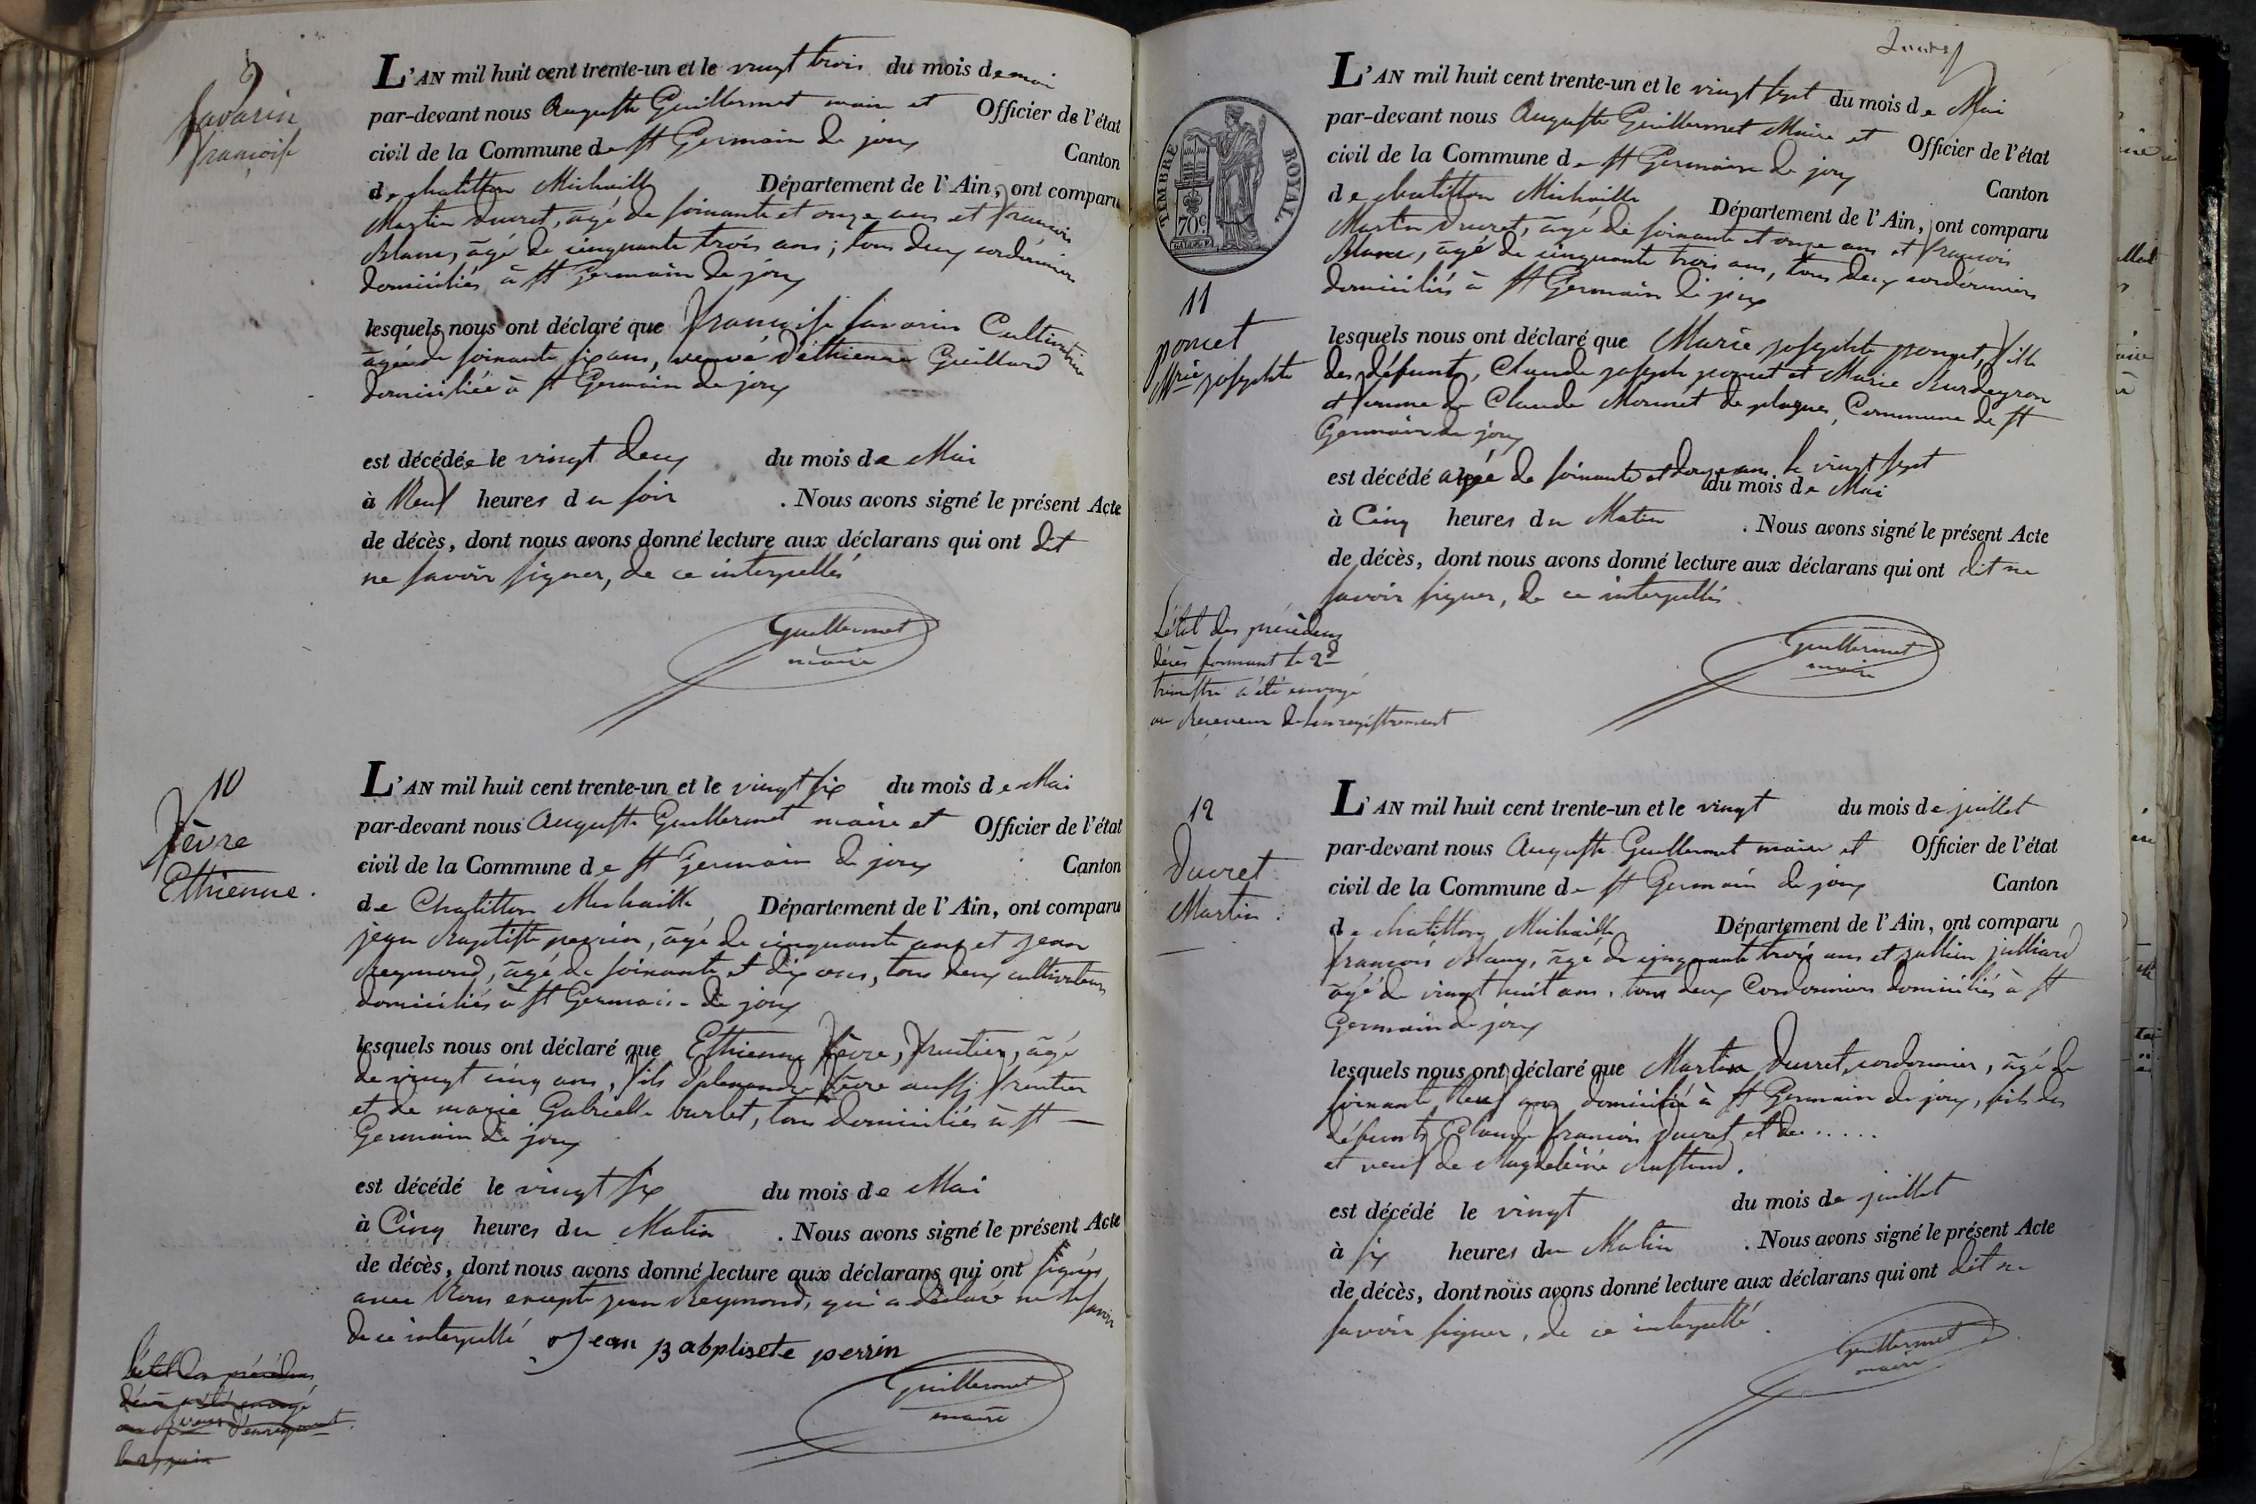 9
Savarin
françoise
L'AN mil huit cent trente-un et le vingt trois du mois de mai
par-devant nous Auguste Guillermet maire et Officier de l'état
civil de la Commune de St Germain de joux Canton
de chatillon Michaille Département de l'Ain, ont comparu
Martin Ducret, âgé de soixante et onze ans et françois
Blanc, âgé de cinquante trois ans; tous deux cordonniers
domiciliés à St Germain de joux
lesquels nous ont déclaré que françoise Savarin Cultivatrice
agée de soixante six ans, veuve d'éthienne Guillard
domiciliée à St Germain de joux
est décédée le vingt deux du mois de Mai
à Neuf heures du soir . Nous avons signé le présent Acte
de décès, dont nous avons donné lecture aux déclarans qui ont dit
ne savoir signer, de ce interpellés
Guillermet
maire
10
fèvre
Ethienne.
L'AN mil huit cent trente-un et le vingt six du mois de Mai
par-devant nous Auguste Guillermet maire et Officier de l'état
civil de la Commune de St Germain de joux Canton
de Chatillon Michaille Département de l'Ain, ont comparu
jean Baptiste perrin, âgé de cinquante ans et jean
Reymond, âgé de soixante et dix ans, tous deux cultivateurs
domiciliés à St Germain de joux
lesquels nous ont déclaré que Ethienne fèvre, fruitier, âgé
de vingt cinq ans, fils d'alexandre fèvre aussi fruitier
et de marie Gabrielle burlet, tous domiciliés à St
Germain de joux
est décédé le vingt six du mois de Mai
à Cinq heures du Matin . Nous avons signé le présent Acte
de décès, dont nous avons donné lecture aux déclarans qui ont signés
avec Nous excepté jean Reymond, qui a déclaré ne le savoir
de ce interpellé Jean Babpliste perrin
Guillermet
maire
L'état des précédens
décès a été envoyé
au d'enregistrement
le juin
L'AN mil huit cent trente-un et le vingt sept du mois de Mai
par-devant nous Auguste Guillermet Maire et Officier de l'état
civil de la Commune de St Germain de joux Canton
de chatillon Michaille Département de l'Ain, ont comparu
Martin Ducret, âgé de soixante et onze ans et françois
Blanc, âgé de cinquante trois ans, tous deux cordonniers
domiciliés à St Germain de joux
TIMBRE ROYAL
70c
11
poncet
Mrie josephte
lesquels nous ont déclaré que Marie josephte poncet, fille
des défunts, Claude joseph poncet et Marie Burdeyron
et femme de Claude Monnet de plagnes, Commune de St
Germain de joux
est décédé agée de soixante et douze ans le vingt sept
du mois de Mai
à Cinq heures du Matin . Nous avons signé le présent Acte
de décès, dont nous avons donné lecture aux déclarans qui ont dit ne
savoir signer, de ce interpellés.
L'état des précédens
décès formant le 2d
trimestre a été envoyé
au Receveur de l'enregistrement
Guillermet
maire
12
Ducret
Martin.
L'AN mil huit cent trente-un et le vingt du mois de juillet
par-devant nous Auguste Guillermet maire et Officier de l'état
civil de la Commune de St Germain de joux Canton
de chatillon Michaille Département de l'Ain, ont comparu
françois Blanc, âgé de cinquante trois ans et jullien julliard
âgé de vingt huit ans, tous deux Cordonniers domiciliés à St
Germain de joux
lesquels nous ont déclaré que Martin Ducret, cordonnier, âgé de
soixante Neuf ans domicilié à St Germain de joux, fils des
défunts Claude françois Ducret et de.....
et veuf de Magdeleine
est décédé le vingt du mois de juillet
à six heures du Matin . Nous avons signé le présent Acte
de décès, dont nous avons donné lecture aux déclarans qui ont dit ne
savoir signer, de ce interpellé.
Guillermet
maire